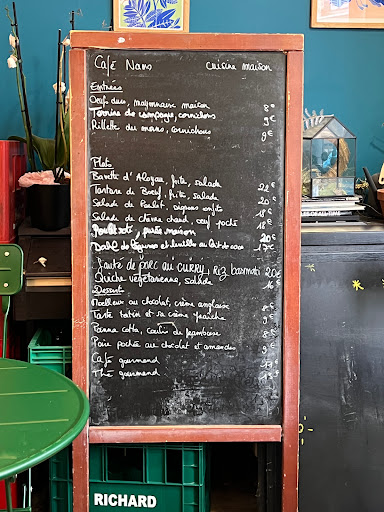 Café Nans cuisine maison
Entrées
Oeufs durs, mayonnaise maison 8€
Terrine de campagne, cornichons 9€
Rillette du mans, cornichons 9€
Plats
Bavette d'Aloyau, frite, salade 22€
Tartare de Boeuf, frite, salade 20€
Salade de Poulet, oignons confits 18€
Salade de chèvre chaud, oeuf poché 18€
Poulet rôti, purée maison 20€
Dahl de légumes et lentilles au lait de coco 17€
Sauté de porc au curry, riz basmati 20€
Quiche végétarienne, salade 16
Dessert
Moelleux au chocolat, crème anglaise
Tarte tatin et sa crème fraîche 9€
Panna cotta, coulis de framboise 8€
Poire pochée au chocolat et amandes 9€
Café gourmand
Thé gourmand
RICHARD